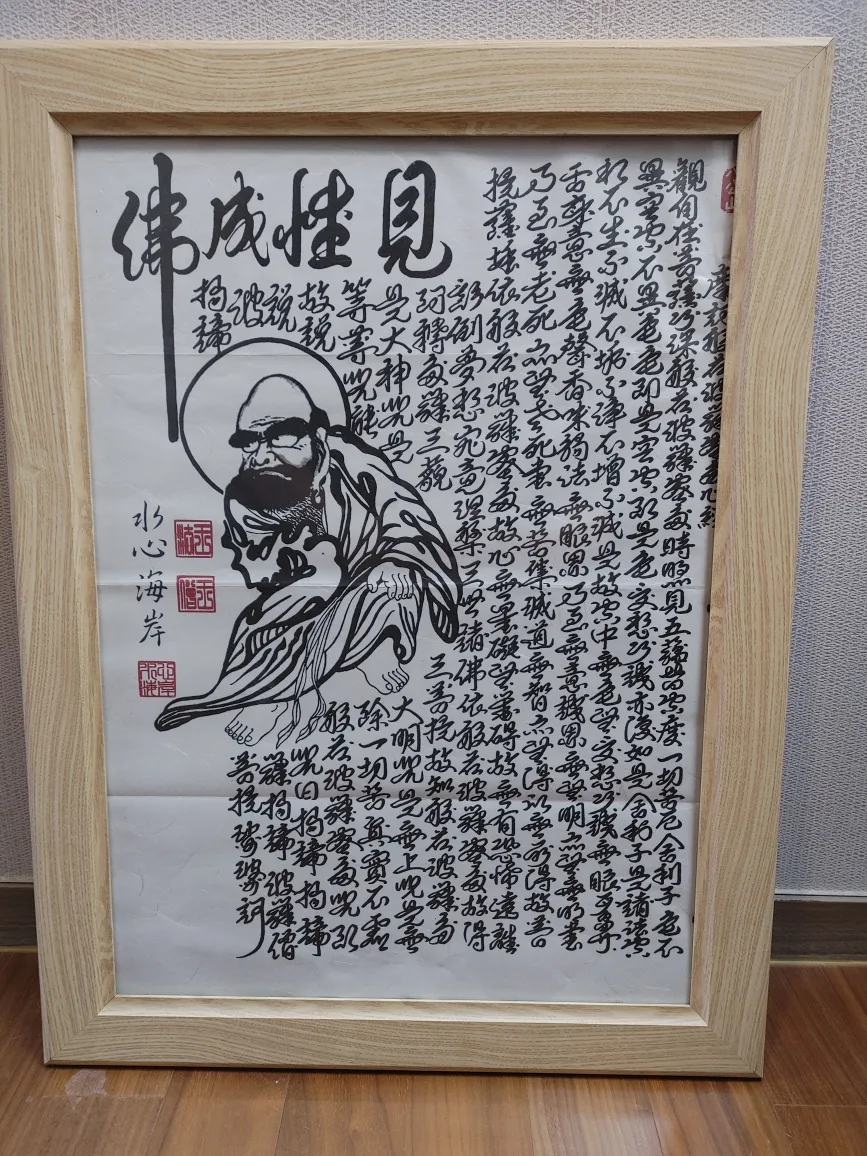 見性成佛
摩訶般若波羅蜜多心經
觀自在菩薩行深般若波羅蜜多時照見五蘊皆空度一切苦厄舍利子色不
異空空不異色色即是空空即是色受想行識亦復如是舍利子是諸法空
相不生不滅不垢不淨不增不減是故空中無色無受想行識無眼耳鼻
舌身意無色聲香味觸法無眼界乃至無意識界無無明亦無無明盡
乃至無老死亦無老死盡無苦集滅道無智亦無得以無所得故菩
提薩埵依般若波羅蜜多故心無罣礙無罣礙故無有恐怖遠離
顛倒夢想究竟涅槃三世諸佛依般若波羅蜜多故得
阿耨多羅三藐三菩提故知般若波羅蜜多
是大神咒是大明咒是無上咒是無
等等咒能除一切苦真實不虛
故說般若波羅蜜多咒即
說咒曰揭諦揭諦
波羅揭諦波羅僧
揭諦菩提薩婆訶
水心海岸